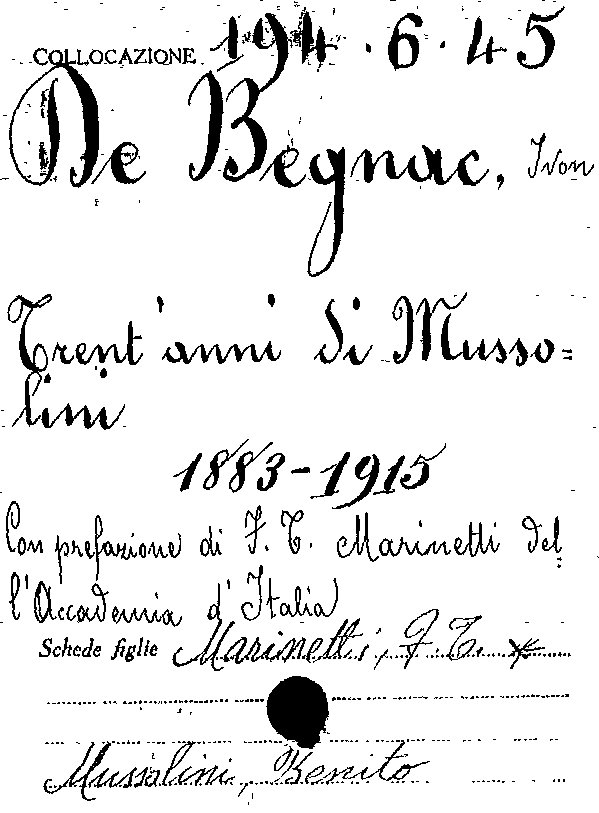 COLLOCAZIONE 194.6.45
De Begnac, Ivon
Trent'anni di Musso=
lini
1883-1915
Con prefazione di F. T. Marinetti del=
l'Accademia d'Italia
Schede figlie Marinetti, F. T. *
Mussolini, Benito